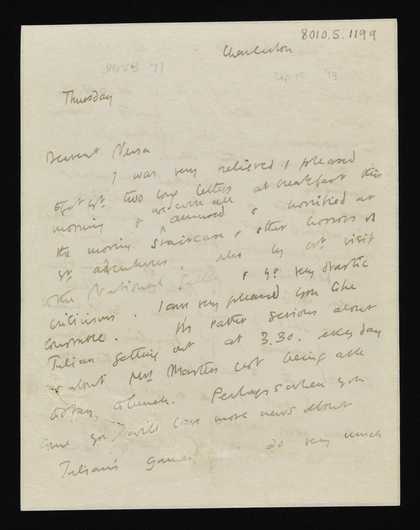 8010.5.1199
Charleston
Thursday
Dearest Nessa
I was very relieved & pleased
to get yr. two long letters at breakfast this
morning & we were all amused & horrified at
the moving staircase & other horrors of
yr adventures. also by yr visit
the National & yr very drastic
criticisms. I am very pleased you like
Its rather serious about
Julian getting out at 3.30. every day
& about Mrs not being able
to lunch. Perhaps when you
come you will have more news about
Julian's so very much